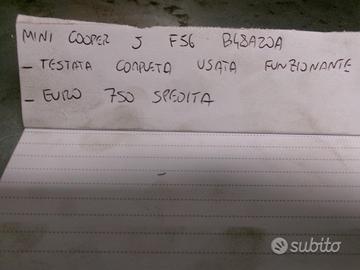 MINI COOPER S F56 B48A20A
- TESTATA COMPLETA USATA FUNZIONANTE
- EURO 750 SPEDITA
subito